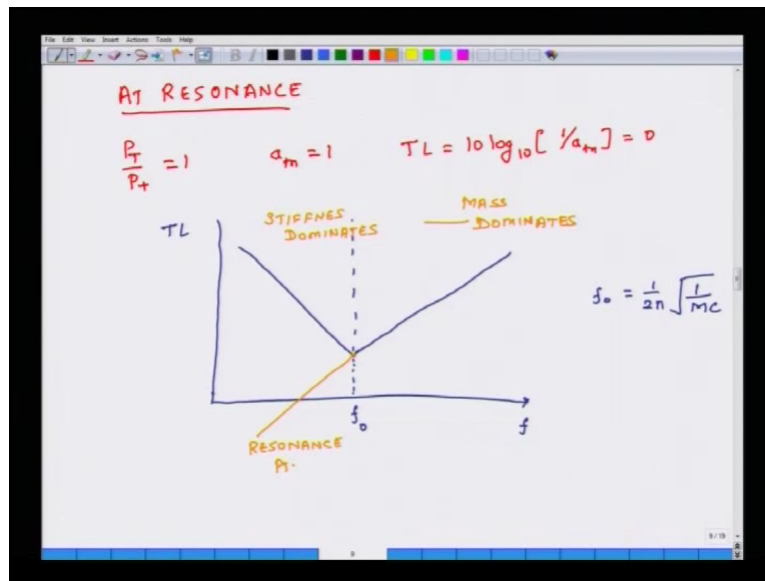 File Edit View Insert Actions Tools Help
AT RESONANCE
P_T/P_+ = 1 a_tn = 1 TL = 10 log_10 [ 1/a_tn ] = 0
TL
STIFFNES
DOMINATES
MASS
DOMINATES
f_0 = 1/2π √(1/MC)
f_0
f
RESONANCE
Pt.
9/19
9